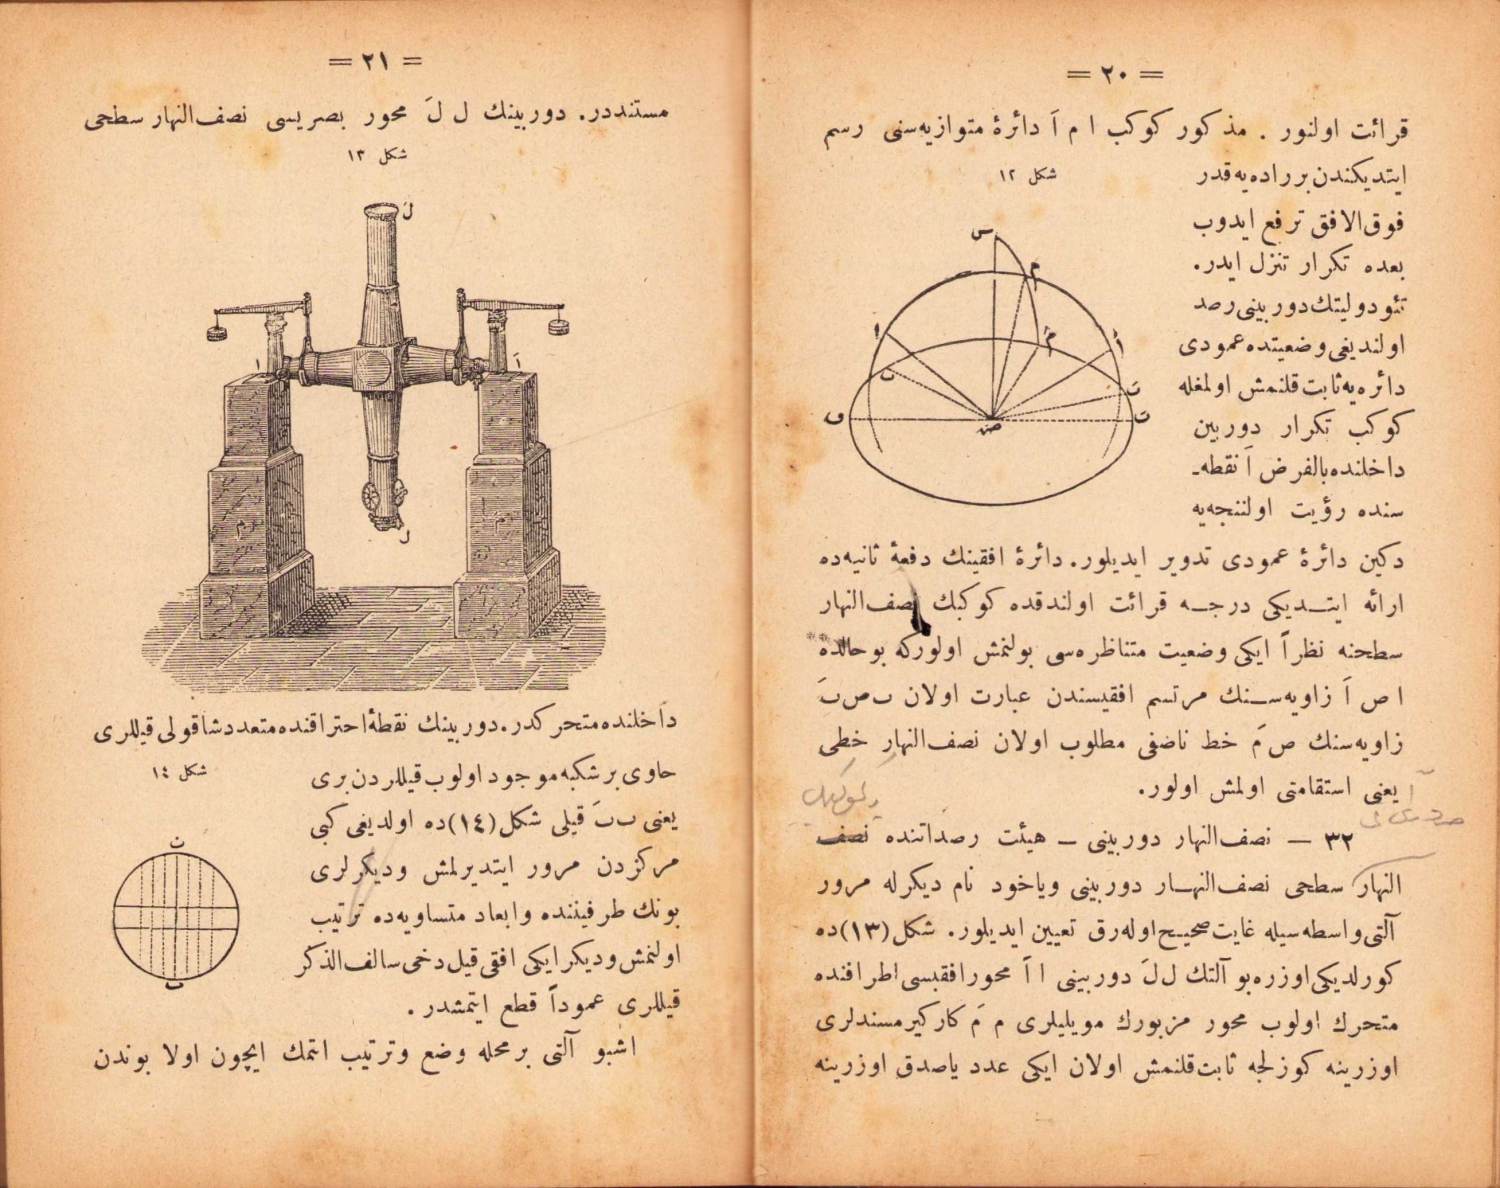 = ٢٠ =
قرائت اولنور . مذكور كوكب ا م اَ دائرۀ متوازيه‌سنى رسم
ايتديكندن برراده‌يه‌قدر
شكل ١٢
فوق‌الافق ترفع ايدوب
بعده تكرار تنزل ايدر.
تئودوليتك دوربينى رصد
اولنديغى وضعيتده عمودى
دائره‌يه ثابت قلنمش اولمغله
كوكب تكرار دوربين
داخلنده بالفرض اَ نقطه‌ـ
سنده رؤيت اولننجه‌يه
س
م
مَ
ا
اَ
ب
بَ
ق
ص
دكين دائرۀ عمودى تدوير ايديلور. دائرۀ افقينك دفعۀ ثانيه‌ده
ارائه ايتــديكى درجــه قرائت اولندقده كوكبك نصف‌النهار
سطحنه نظراً ايكى وضعيت متناظره‌سى بولنمش اولوركه بو حالده
ا ص اَ زاويه‌ســنك مرتسم افقيسندن عبارت اولان ب ص بَ
زاويه‌سنك ص مَ خط ناضفى مطلوب اولان نصف‌النهار خطى
يعنى استقامتى اولمش اولور.
٣٢ — نصف‌النهار دوربينى — هيئت رصداتنده نصف
النهار سطحى نصف‌النهــار دوربينى وياخود نام ديكرله مرور
آلتى واسطه‌سيله غايت صحيح اوله‌رق تعيين ايديلور. شكل (١٣) ده
كورلديكى اوزره بو آلتك ل لَ دوربينى ا اَ محور افقيسى اطرافنده
متحرك اولوب محور مزبورك مويليلرى م مَ كاركير مسندلرى
اوزرينه كوزلجه ثابت قلنمش اولان ايكى عدد ياصدق اوزرينه
= ٢١ =
مستنددر. دوربينك ل لَ محور بصريسى نصف‌النهار سطحى
شكل ١٣
لَ
ا
اَ
م
ل
داخلنده متحركدر. دوربينك نقطۀ احتراقنده متعدد شاقولى قيللرى
حاوى بر شبكه موجود اولوب قيللردن برى
شكل ١٤
يعنى ب بَ قيلى شكل (١٤) ده اولديغى كبى
مركزدن مرور ايتديرلمش وديكرلرى
بونك طرفيننده وابعاد متساويه‌ده ترتيب
اولنمش وديكر ايكى افقى قيل دخى سالف‌الذكر
قيللرى عموداً قطع ايتمشدر .
ب
اشبو آلتى بر محله وضع وترتيب اتمك ايچون اولا بوندن